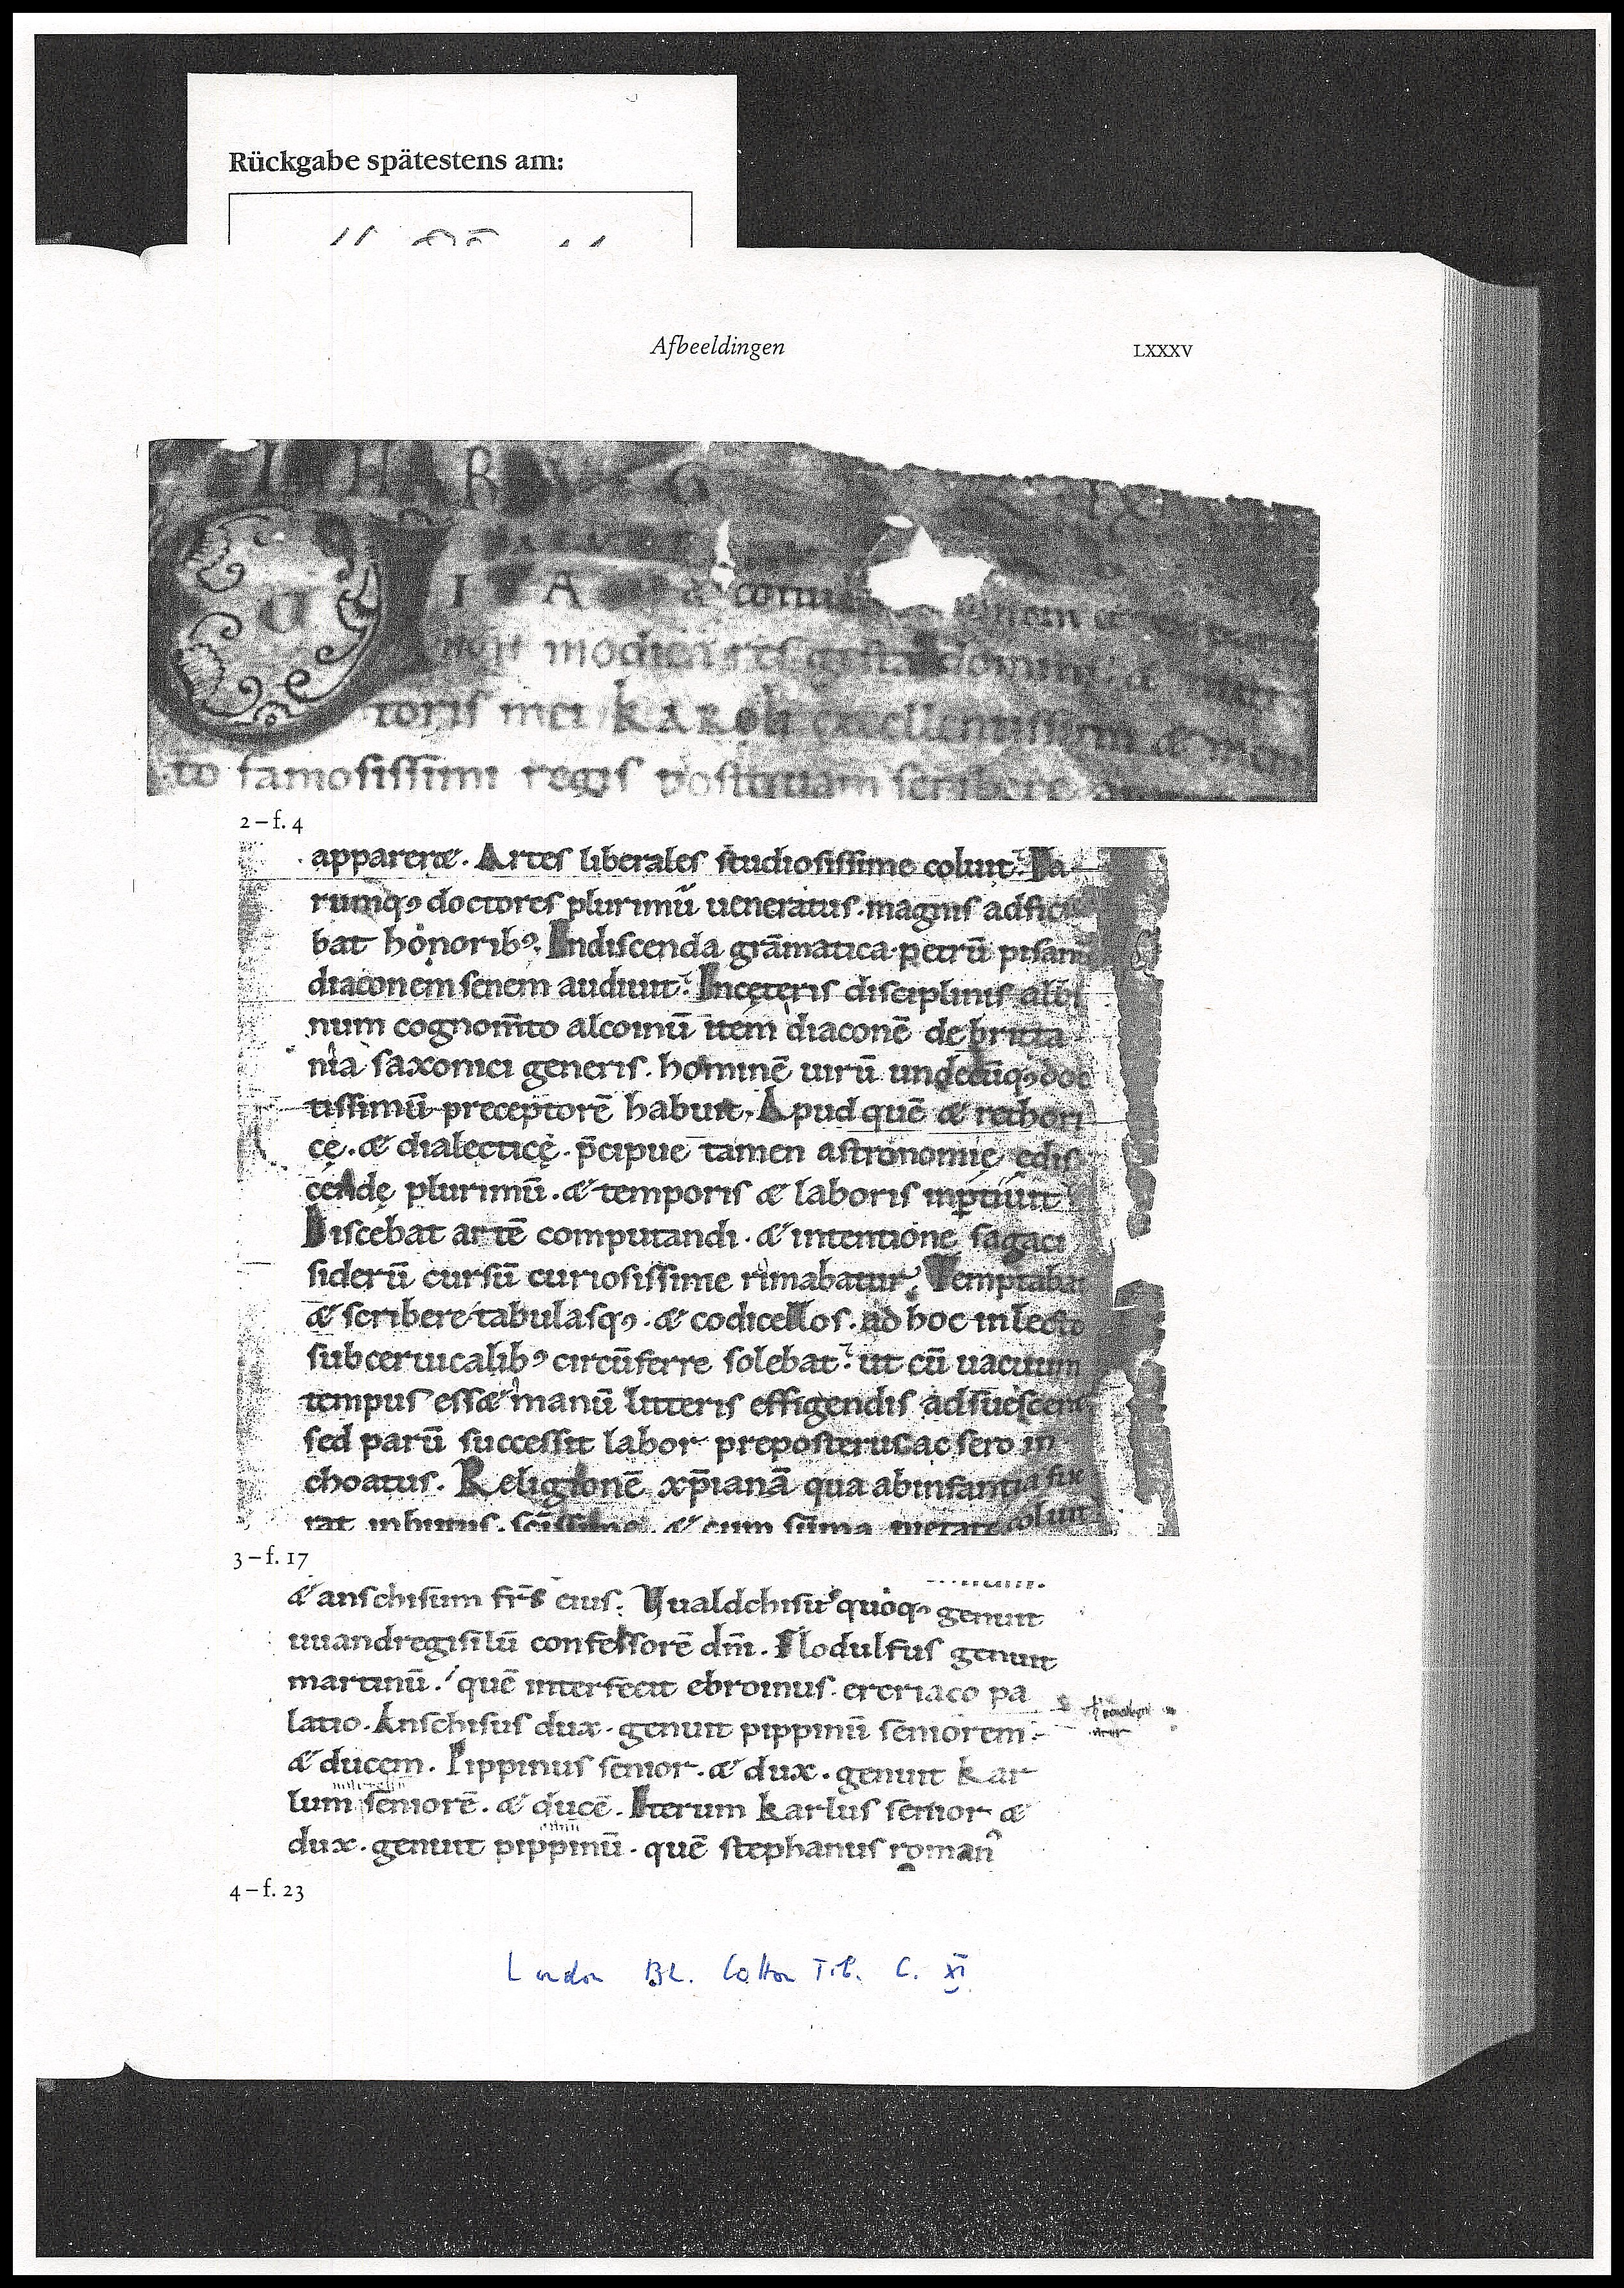 Rückgabe spätestens am:
Afbeeldingen LXXXV
I A
modica
toris mei KARoli excellentissimi & meri
to famosissimi regis postquam scribere
2 – f. 4
apparere. Artes liberales studiosissime coluit. Ea
rumq; doctores plurimū ueneratus. magnis adficie
bat honorib9. Indiscenda grāmatica. petrū pisanū
diaconem senem audiuit. Incęteris disciplinis albi
num cognom̄to alcoinū item diaconē de britta
nia saxonici generis. hominē uirū undecūq; doc
tissimū preceptorē habuit. Apud quē & rethori
cę. & dialecticę. p̄cipue tamen astronomię edis
cendę plurimū. & temporis & laboris inptiuit
Discebat artē computandi. & intentione sagaci
siderū cursū curiosissime rimabatur. Temptabat
& scribere tabulasq; . & codicellos. ad hoc in lecto
sub ceruicalib9 circūferre solebat. ut cū uacuum
tempus ess& manū litteris effigendis adsuesceret
sed parū successit labor preposterus ac sero in
choatus. Religionē xp̄ianā qua abinfantia fue
rat inbutus. scīssime. & cum sūma pietate coluit
3 – f. 17
& anschisum fr̄s eius. Uualdchisus quoq; genuit
uuandregisilū confessorē dn̄i. Flodulfus genuit
martinū. quē interfecit ebroinus. ercriaco pa
latio. Anschisus dux. genuit pippinū seniorem.
& ducem. Pippinus senior. & dux. genuit kar
lum seniorē. & ducē. Iterum karlus senior &
dux. genuit pippinū. quē stephanus roman9
4 – f. 23
London BL. Cotton Tib. C. XI